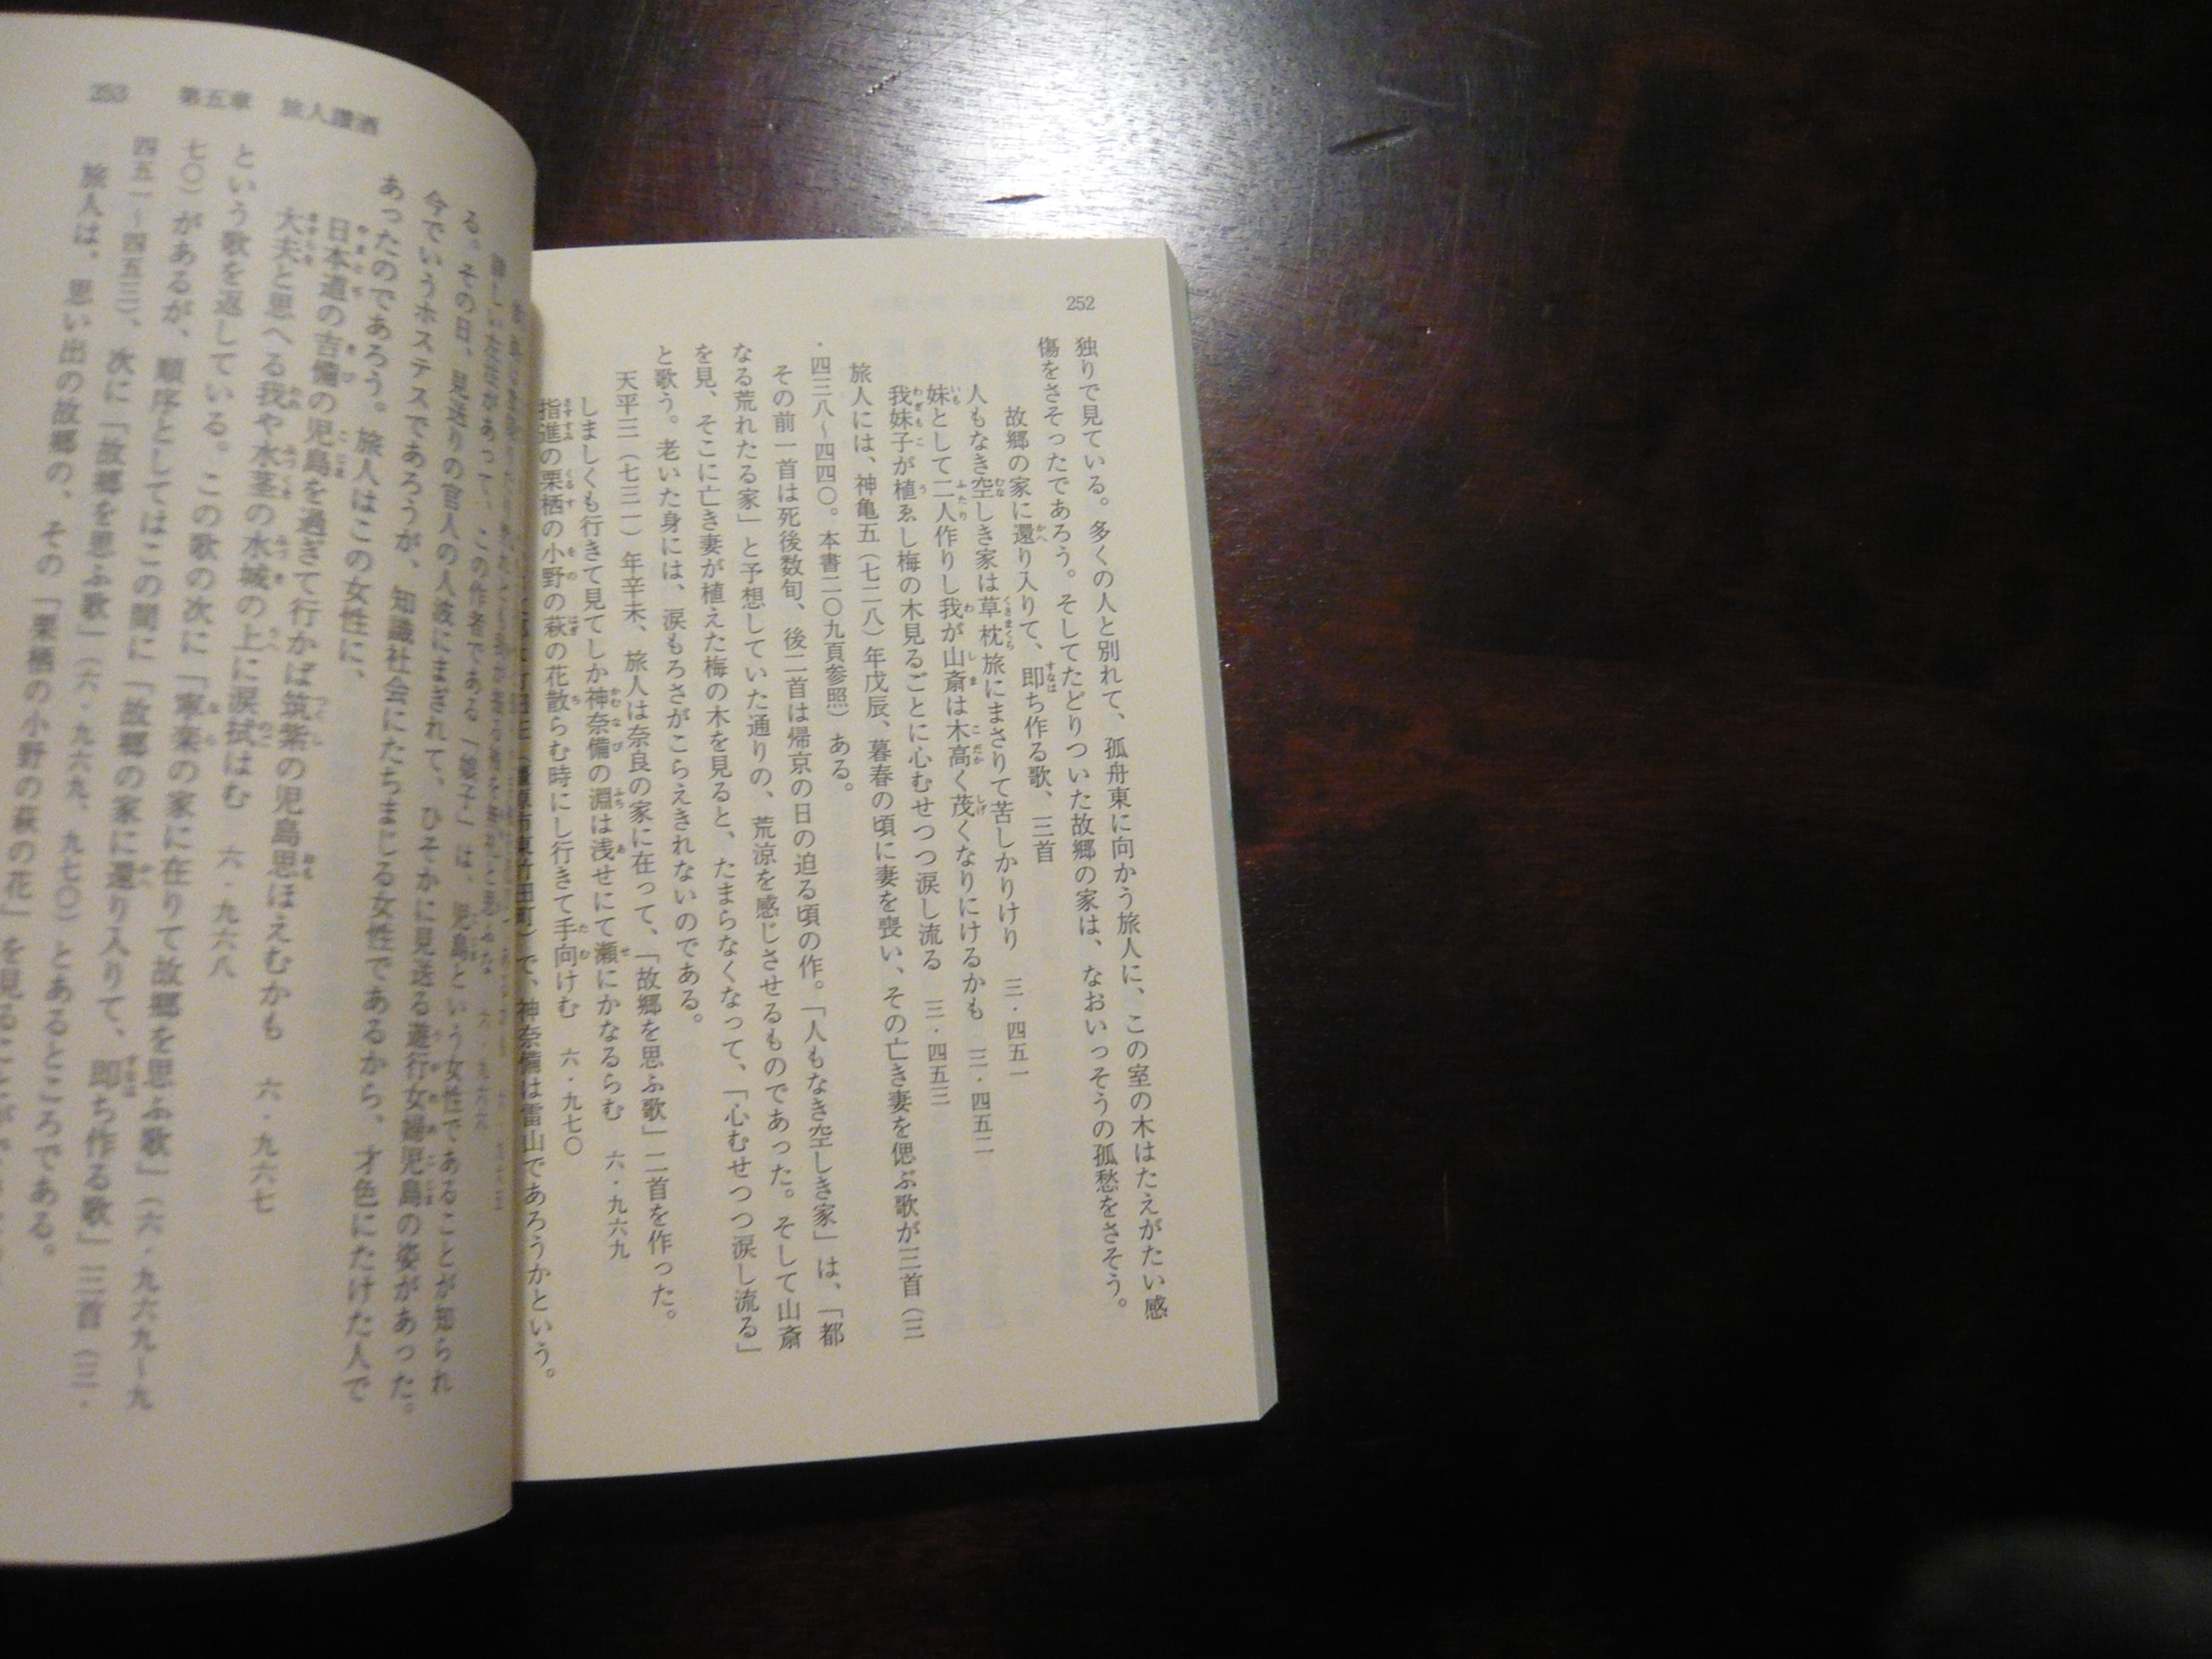 252
独りで見ている。多くの人と別れて、孤舟東に向かう旅人に、この室の木はたえがたい感
傷をさそったであろう。そしてたどりついた故郷の家は、なおいっそうの孤愁をさそう。
故郷の家に還り入りて、即ち作る歌、三首
人もなき空しき家は草枕旅にまさりて苦しかりけり　三・四五一
妹として二人作りし我が山斎は木高く茂くなりにけるかも　三・四五二
我妹子が植ゑし梅の木見るごとに心むせつつ涙し流る　三・四五三
旅人には、神亀五（七二八）年戊辰、暮春の頃に妻を喪い、その亡き妻を偲ぶ歌が三首（三
・四三八〜四四〇。本書二〇九頁参照）ある。
その前一首は死後数旬、後二首は帰京の日の迫る頃の作。「人もなき空しき家」は、「都
なる荒れたる家」と予想していた通りの、荒涼を感じさせるものであった。そして山斎
を見、そこに亡き妻が植えた梅の木を見ると、たまらなくなって、「心むせつつ涙し流る」
と歌う。老いた身には、涙もろさがこらえきれないのである。
天平三（七三一）年辛未、旅人は奈良の家に在って、「故郷を思ふ歌」二首を作った。
しましくも行きて見てしか神奈備の淵は浅せにて瀬にかなるらむ　六・九六九
指進の栗栖の小野の萩の花散らむ時にし行きて手向けむ　六・九七〇
で、神奈備は雷山であろうかという。
253　第五章　旅人讃酒
この作者である「娘子」は、児島という女性であることが知られ
る。その日、見送りの官人の人波にまぎれて、ひそかに見送る遊行女婦児島の姿があった。
今でいうホステスであろうが、知識社会にたちまじる女性であるから、才色にたけた人で
あったのであろう。旅人はこの女性に、
日本道の吉備の児島を過ぎて行かば筑紫の児島思ほえむかも　六・九六七
大夫と思へる我や水茎の水城の上に涙拭はむ　六・九六八
という歌を返している。この歌の次に「寧楽の家に在りて故郷を思ふ歌」（六・九六九〜九
七〇）があるが、順序としてはこの間に「故郷の家に還り入りて、即ち作る歌」三首（三・
四五一〜四五三）、次に「故郷を思ふ歌」（六・九六九、九七〇）とあるところである。
旅人は、思い出の故郷の、その「栗栖の小野の萩の花」を見ることが